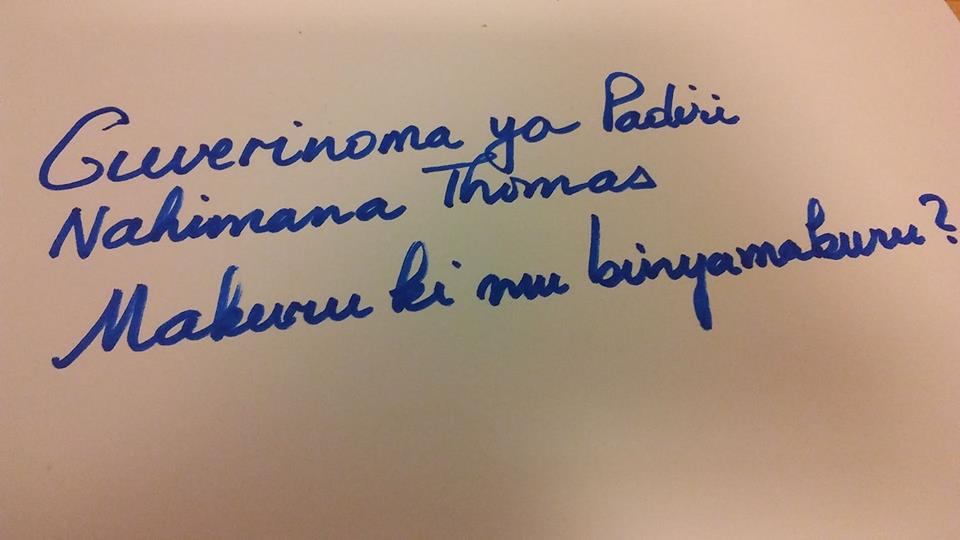 Guverinoma ya Padiri
Nahimana Thomas
Makuru ki mu binyamakuru?